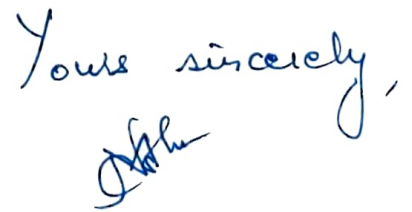 Yours sincerely,